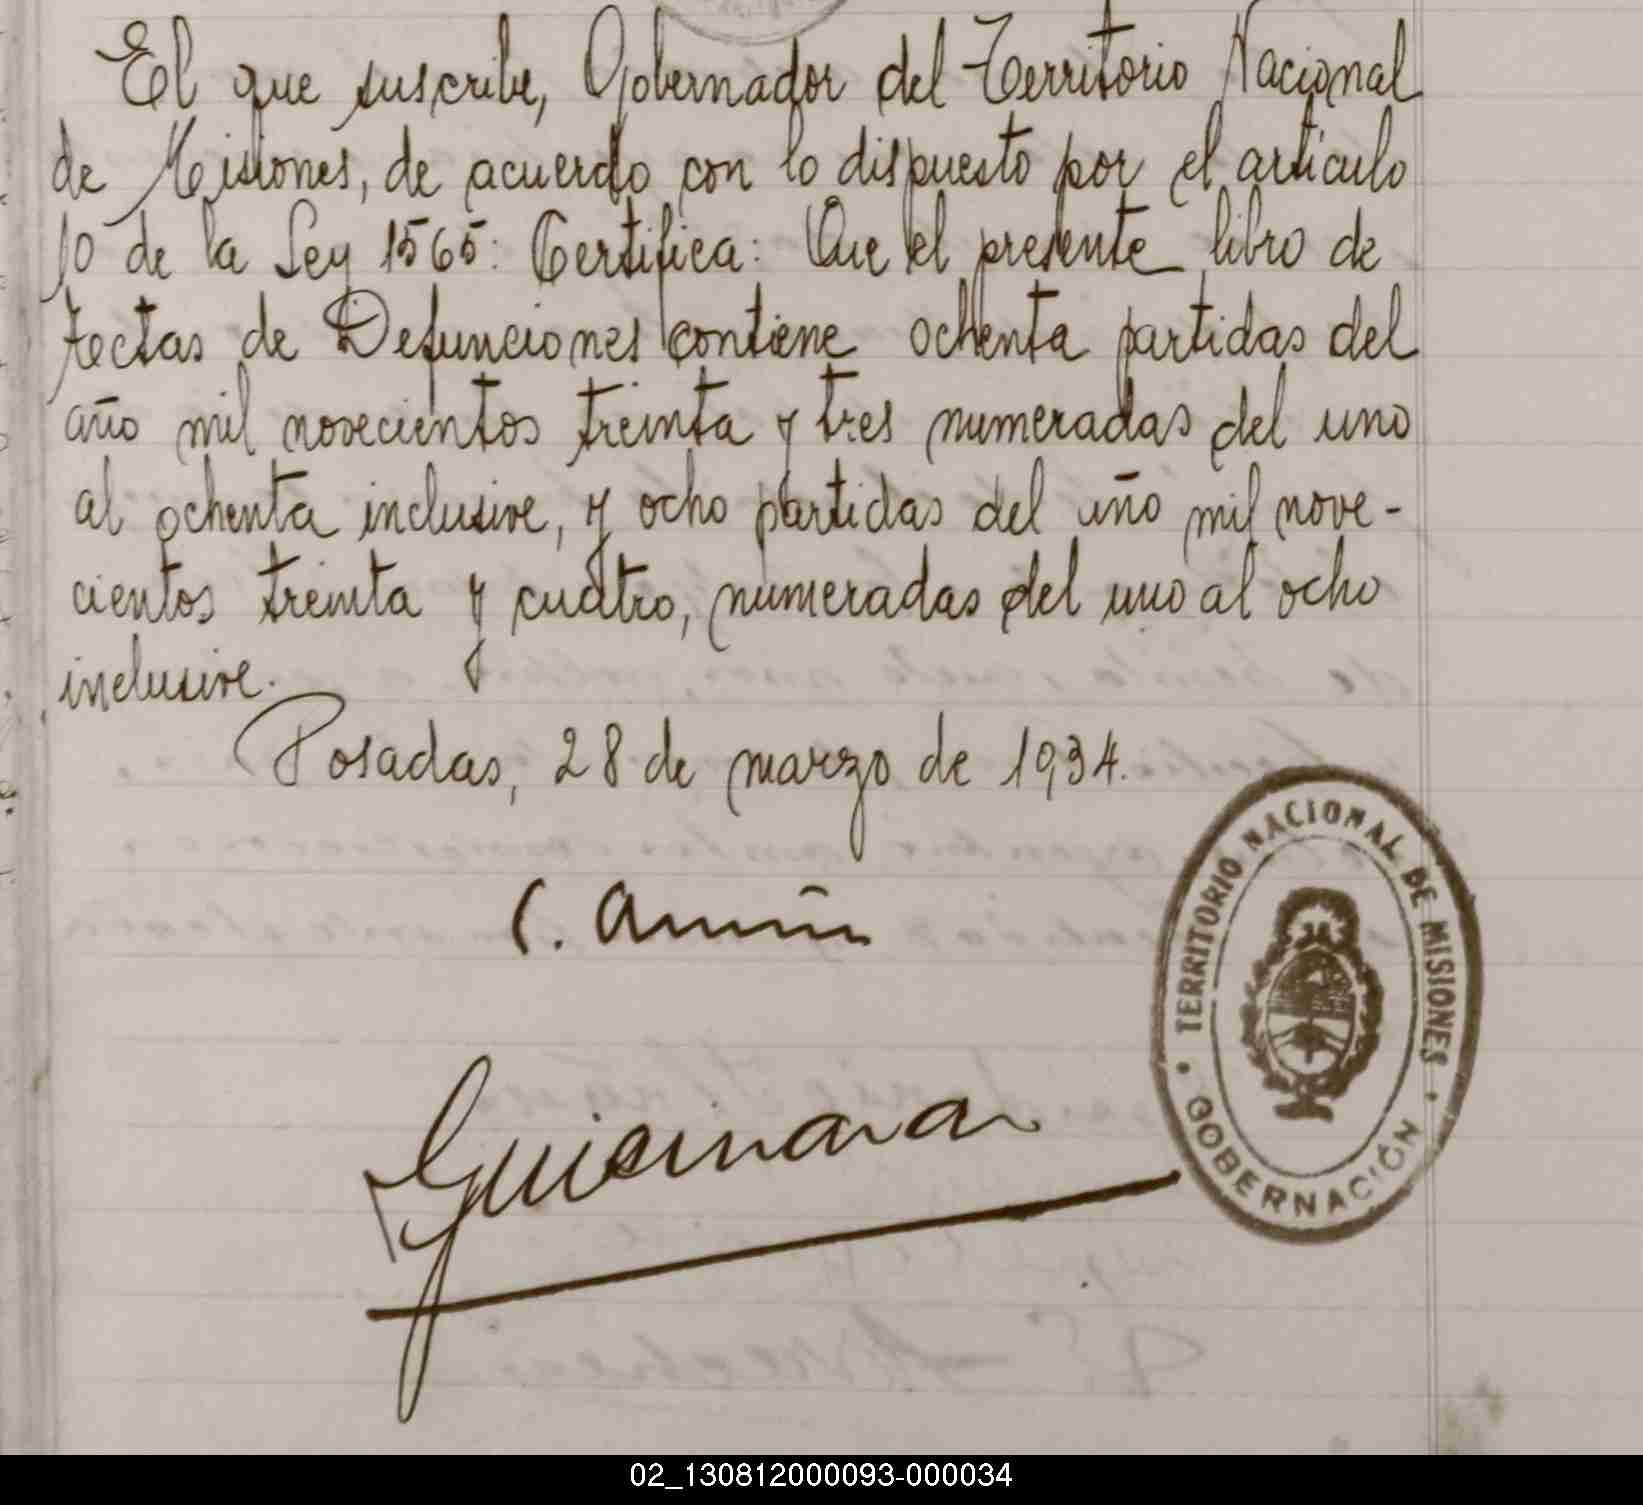 El que suscribe, Gobernador del Territorio Nacional
de Misiones, de acuerdo con lo dispuesto por el artículo
10 de la Ley 1565: Certifica: Que el presente libro de
Actas de Defunciones contiene ochenta partidas del
año mil novecientos treinta y tres numeradas del uno
al ochenta inclusive, y ocho partidas del año mil nove-
cientos treinta y cuatro, numeradas del uno al ocho
inclusive.
Posadas, 28 de marzo de 1934.
C.
TERRITORIO NACIONAL DE MISIONES
GOBERNACIÓN
02_130812000093-000034